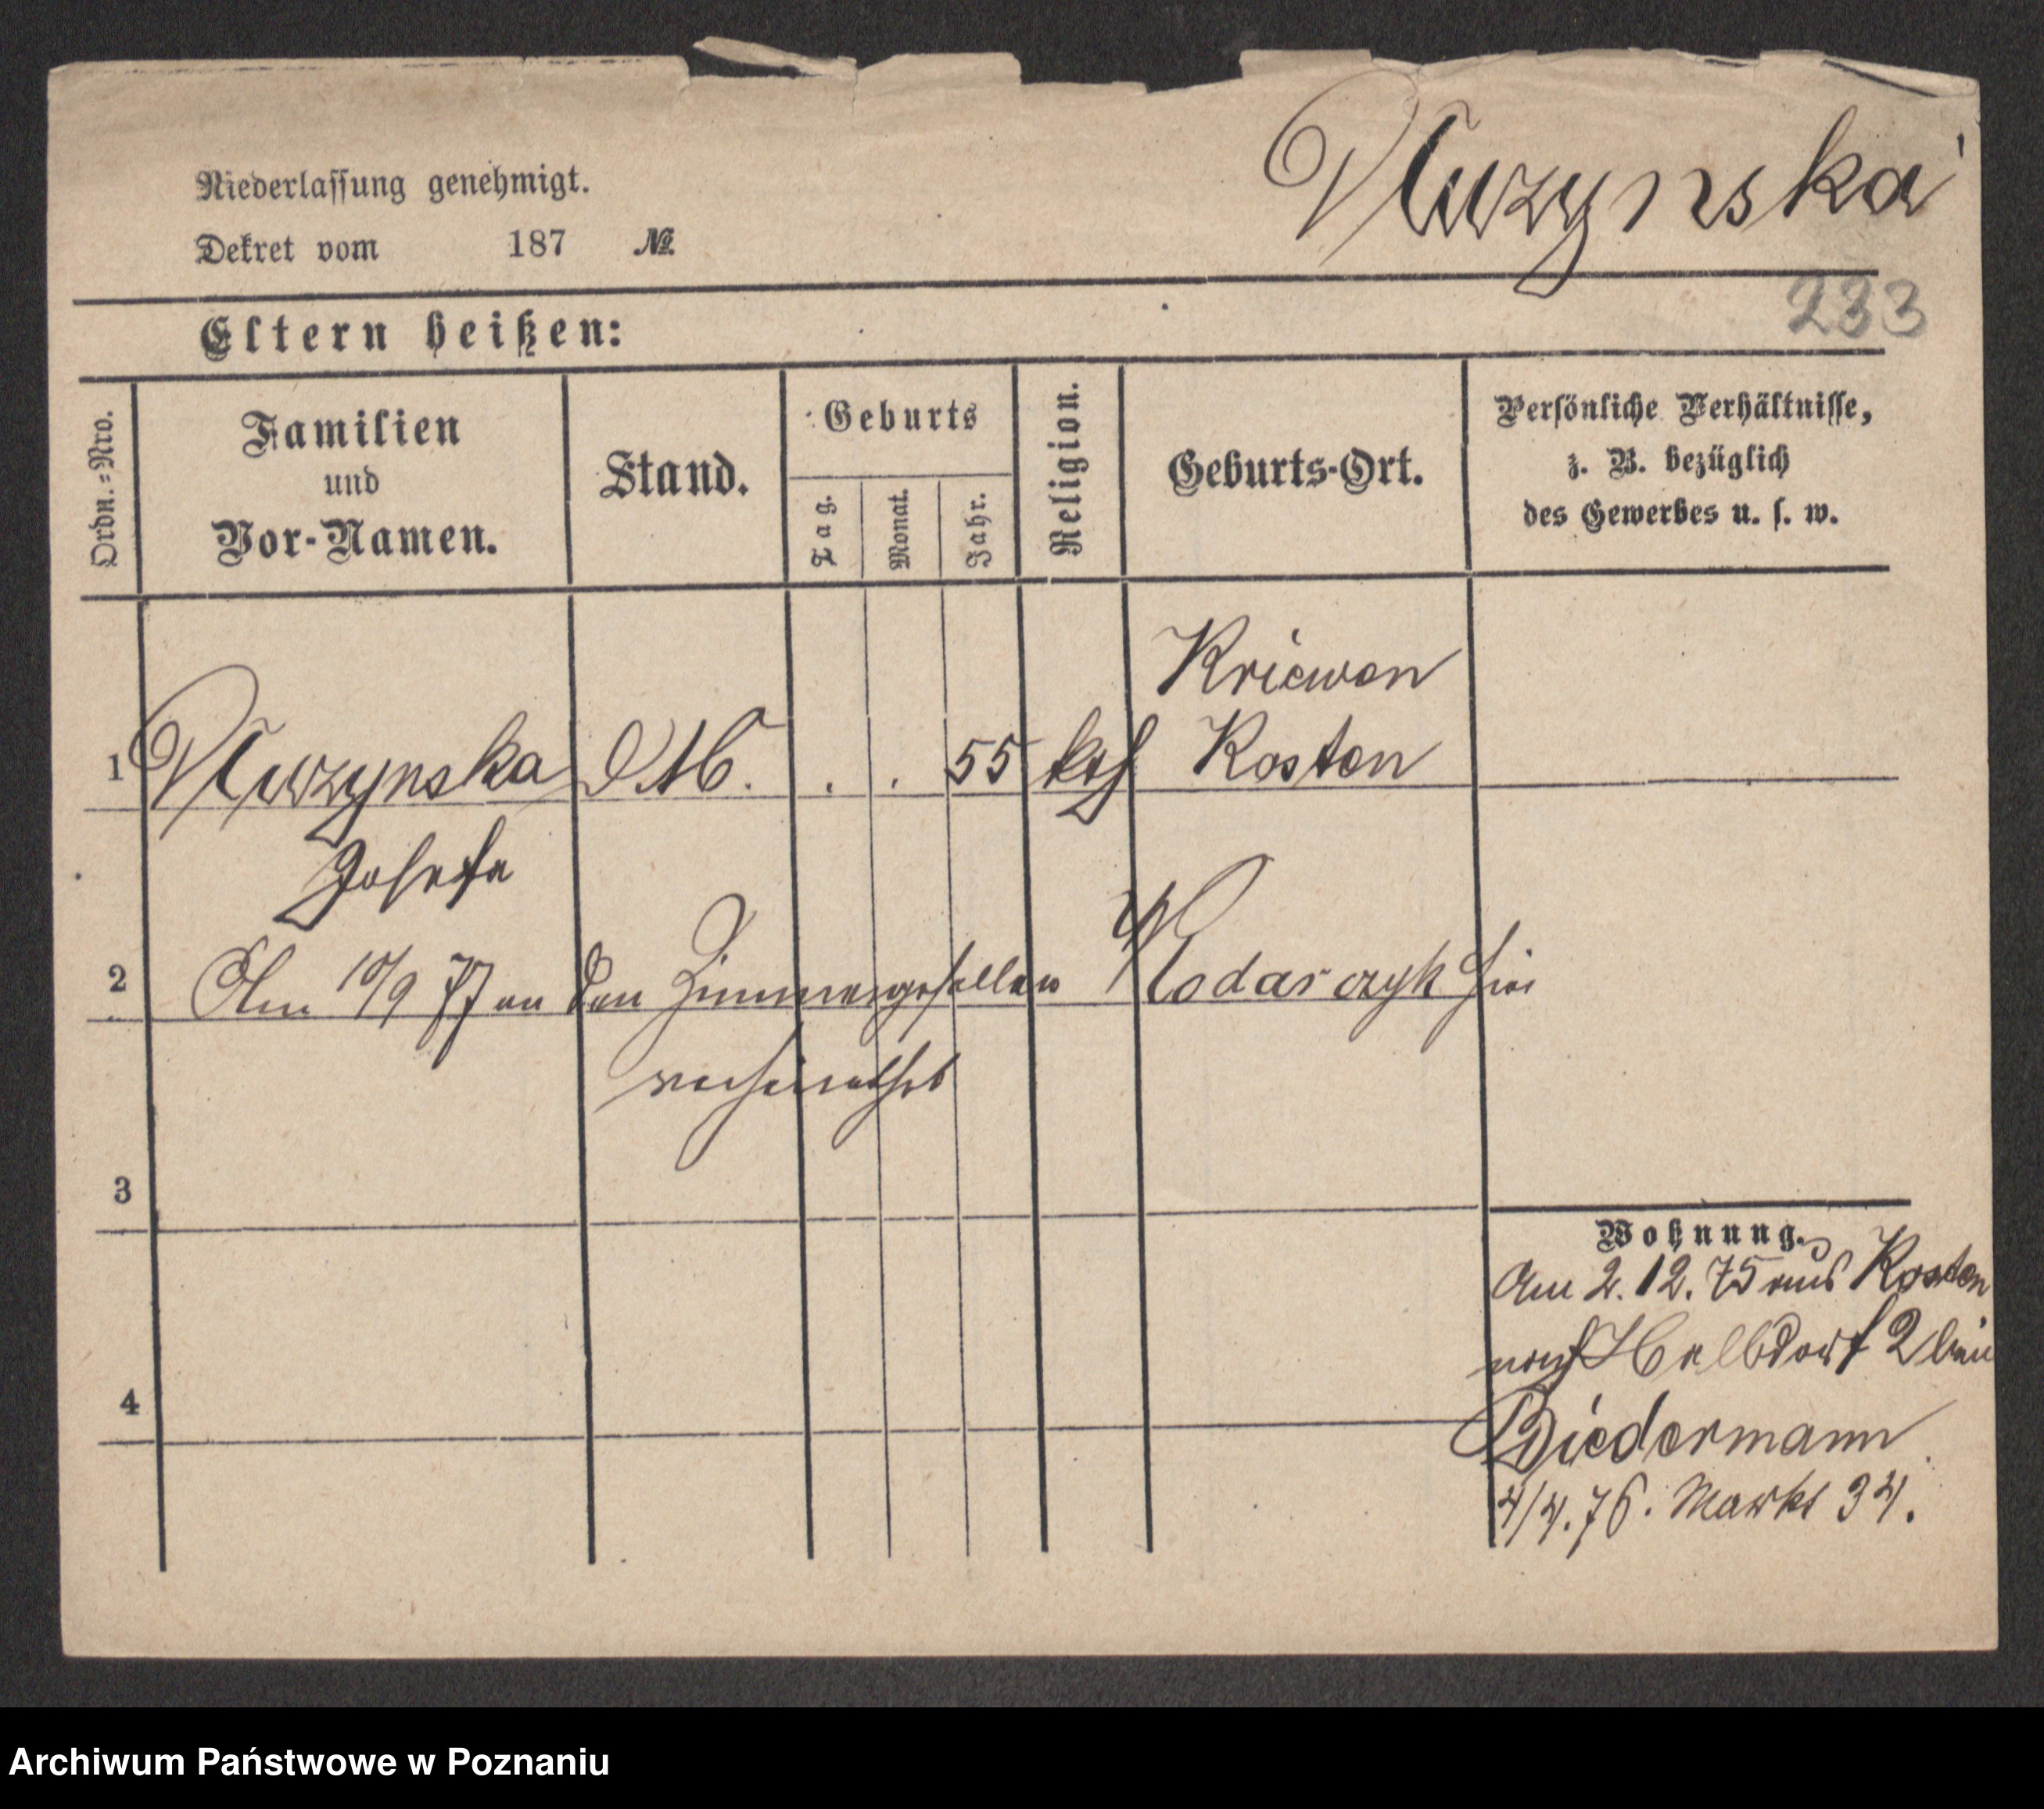 Niederlassung genehmigt.
Dekret vom 187 №
233
Eltern heißen:
Ordn.=Nro.
Familien
und
Vor-Namen.
Stand.
Geburts
Tag.
Monat.
Jahr.
Religion.
Geburts-Ort.
Persönliche Verhältnisse,
z. B. bezüglich
des Gewerbes u. s. w.
Kriewen
1 DM. . . 55 kth Kosten
Josefa
2 Am 10/9 77 an den Zimmergesellen Wlodarczyk hier
verheirathet
3
Wohnung.
Am 2. 12. 75 aus Kosten
nach Halbdorf 2 bei
4
Biedermann
4/4. 76. Markt 34.
Archiwum Państwowe w Poznaniu